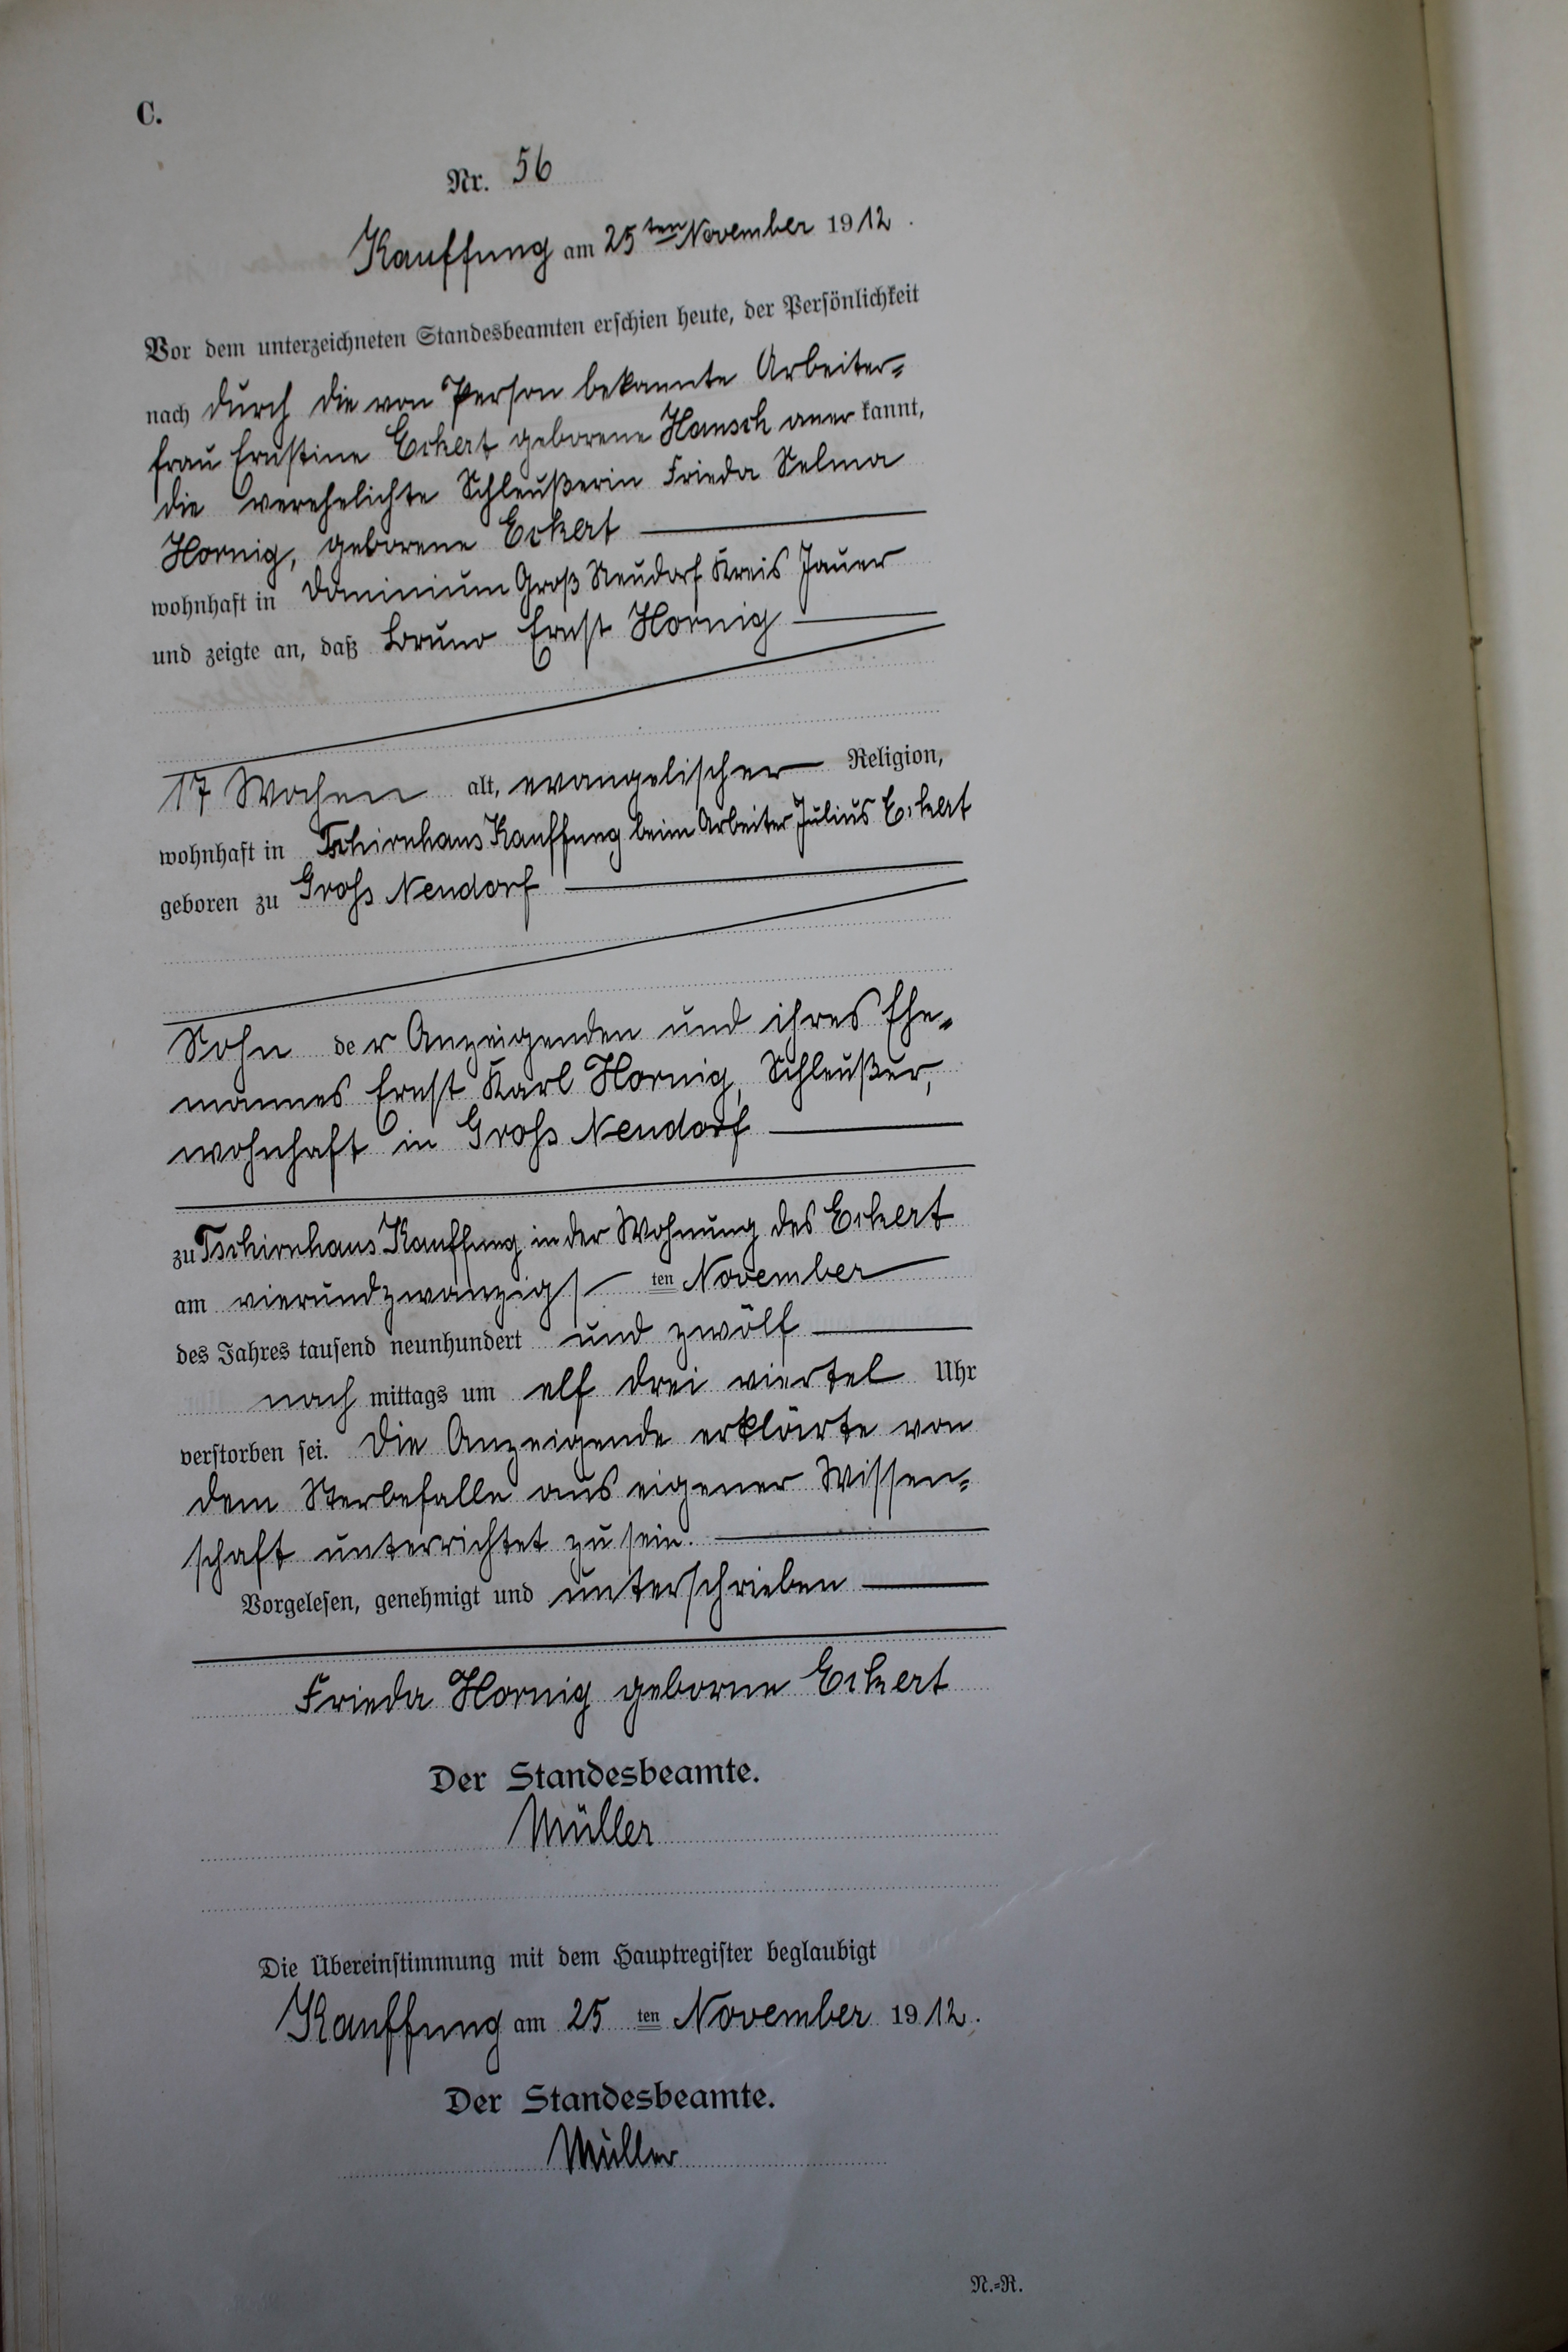 C.
Nr. 56
Kauffung am 25ten November 1912.
Vor dem unterzeichneten Standesbeamten erschien heute, der Persönlichkeit
nach durch die von Person bekannte Arbeiter=
frau Ernstine Eckert geborene Hansch anerkannt,
die verehelichte Schleußerin Frieda Selma
Hornig, geborene Eckert
wohnhaft in Dominium Groß Neudorf Kreis Jauer
und zeigte an, daß Bruno Ernst Hornig
17 Wochen alt, evangelischer Religion,
wohnhaft in Tschirnhaus Kauffung beim Arbeiter Julius Eckert
geboren zu Gross Neudorf
Sohn der Anzeigenden und ihres Ehe=
mannes Ernst Karl Hornig, Schleußer,
wohnhaft in Gross Neudorf
zu Tschirnhaus Kauffung in der Wohnung des Eckert
am vierundzwanzigsten November
des Jahres tausend neunhundert und zwölf
nachmittags um elf drei viertel Uhr
verstorben sei. Die Anzeigende erklärte von
dem Sterbefalle aus eigener Wissen=
schaft unterrichtet zu sein.
Vorgelesen, genehmigt und unterschrieben
Frieda Hornig geborne Eckert
Der Standesbeamte.
Müller
Die Übereinstimmung mit dem Hauptregister beglaubigt
Kauffung am 25ten November 1912.
Der Standesbeamte.
Müller
N.=R.